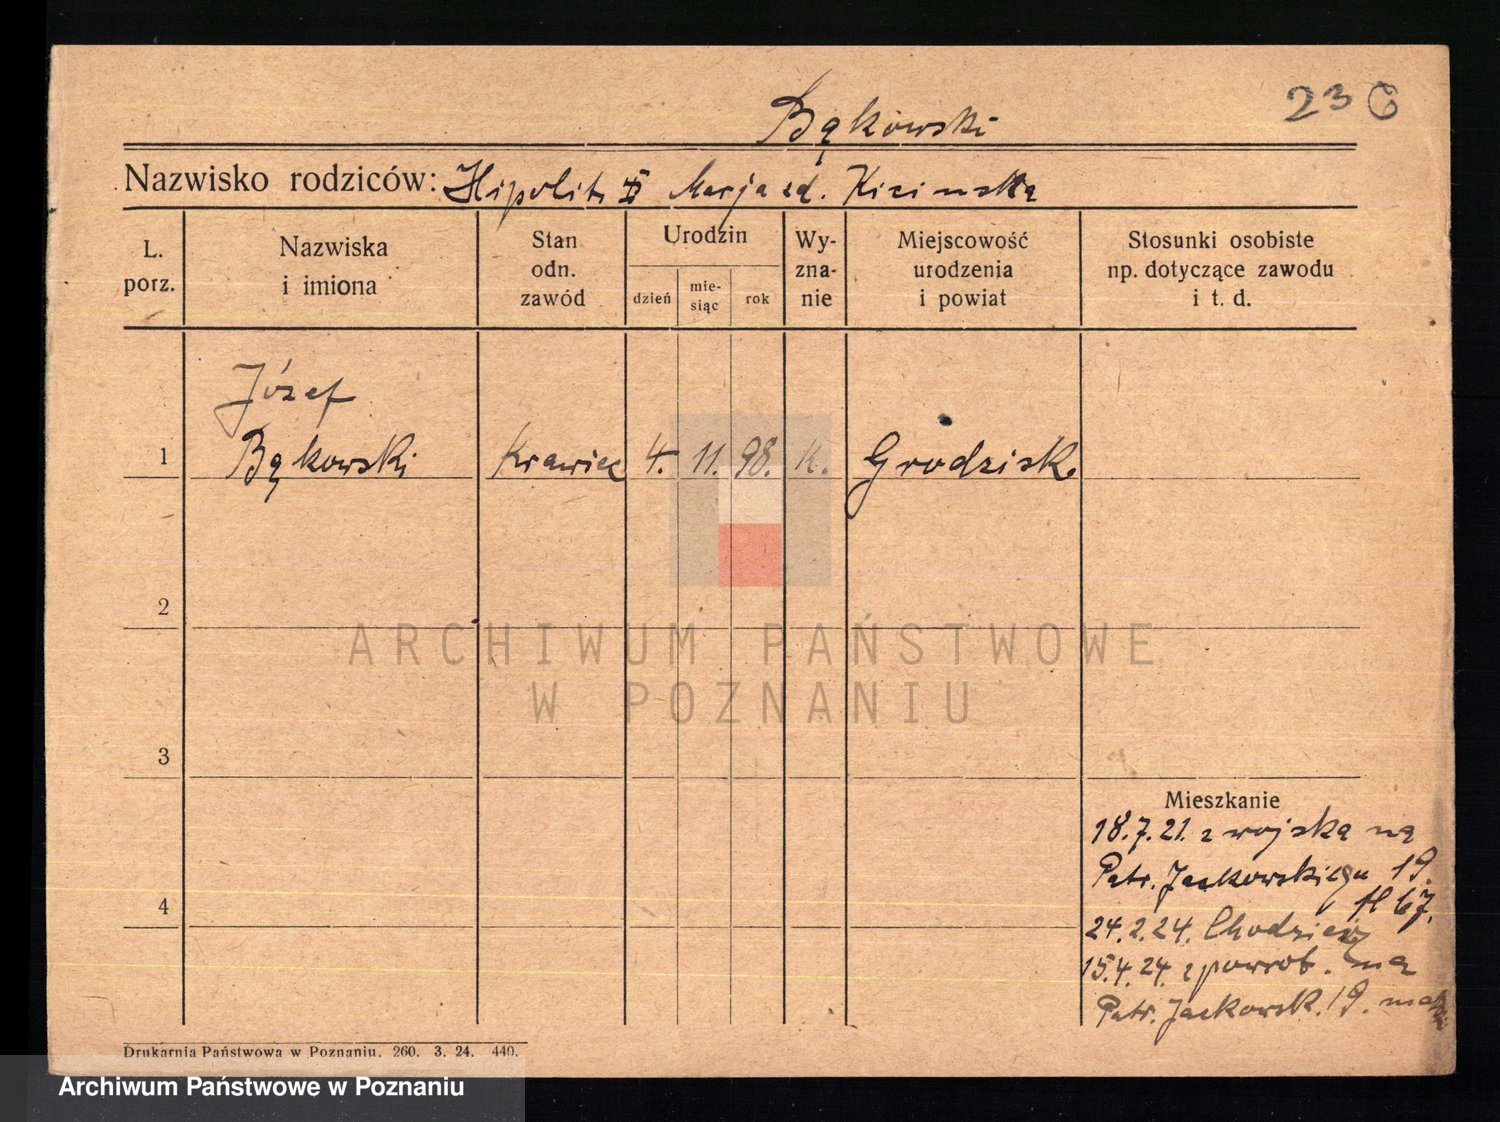 23
Bąkowski
Nazwisko rodziców: Hipolit Marja zd.
L. porz.
Nazwiska i imiona
Stan odn. zawód
Urodzin
dzień
mie-siąc
rok
Wy-zna-nie
Miejscowość urodzenia i powiat
Stosunki osobiste np. dotyczące zawodu i t. d.
Józef
1 Bąkowski krawiec 4. 11. 98. k. Grodzisk
2
3
4
Mieszkanie
18.7.21. z wojska na
Patr. Jackowskiego 19.
24.2.24. Chodzież
15.4.24. z powrot. na
Patr. Jackowsk. 19.
Drukarnia Państwowa w Poznaniu. 260. 3. 24. 440.
ARCHIWUM PAŃSTWOWE
W POZNANIU
Archiwum Państwowe w Poznaniu